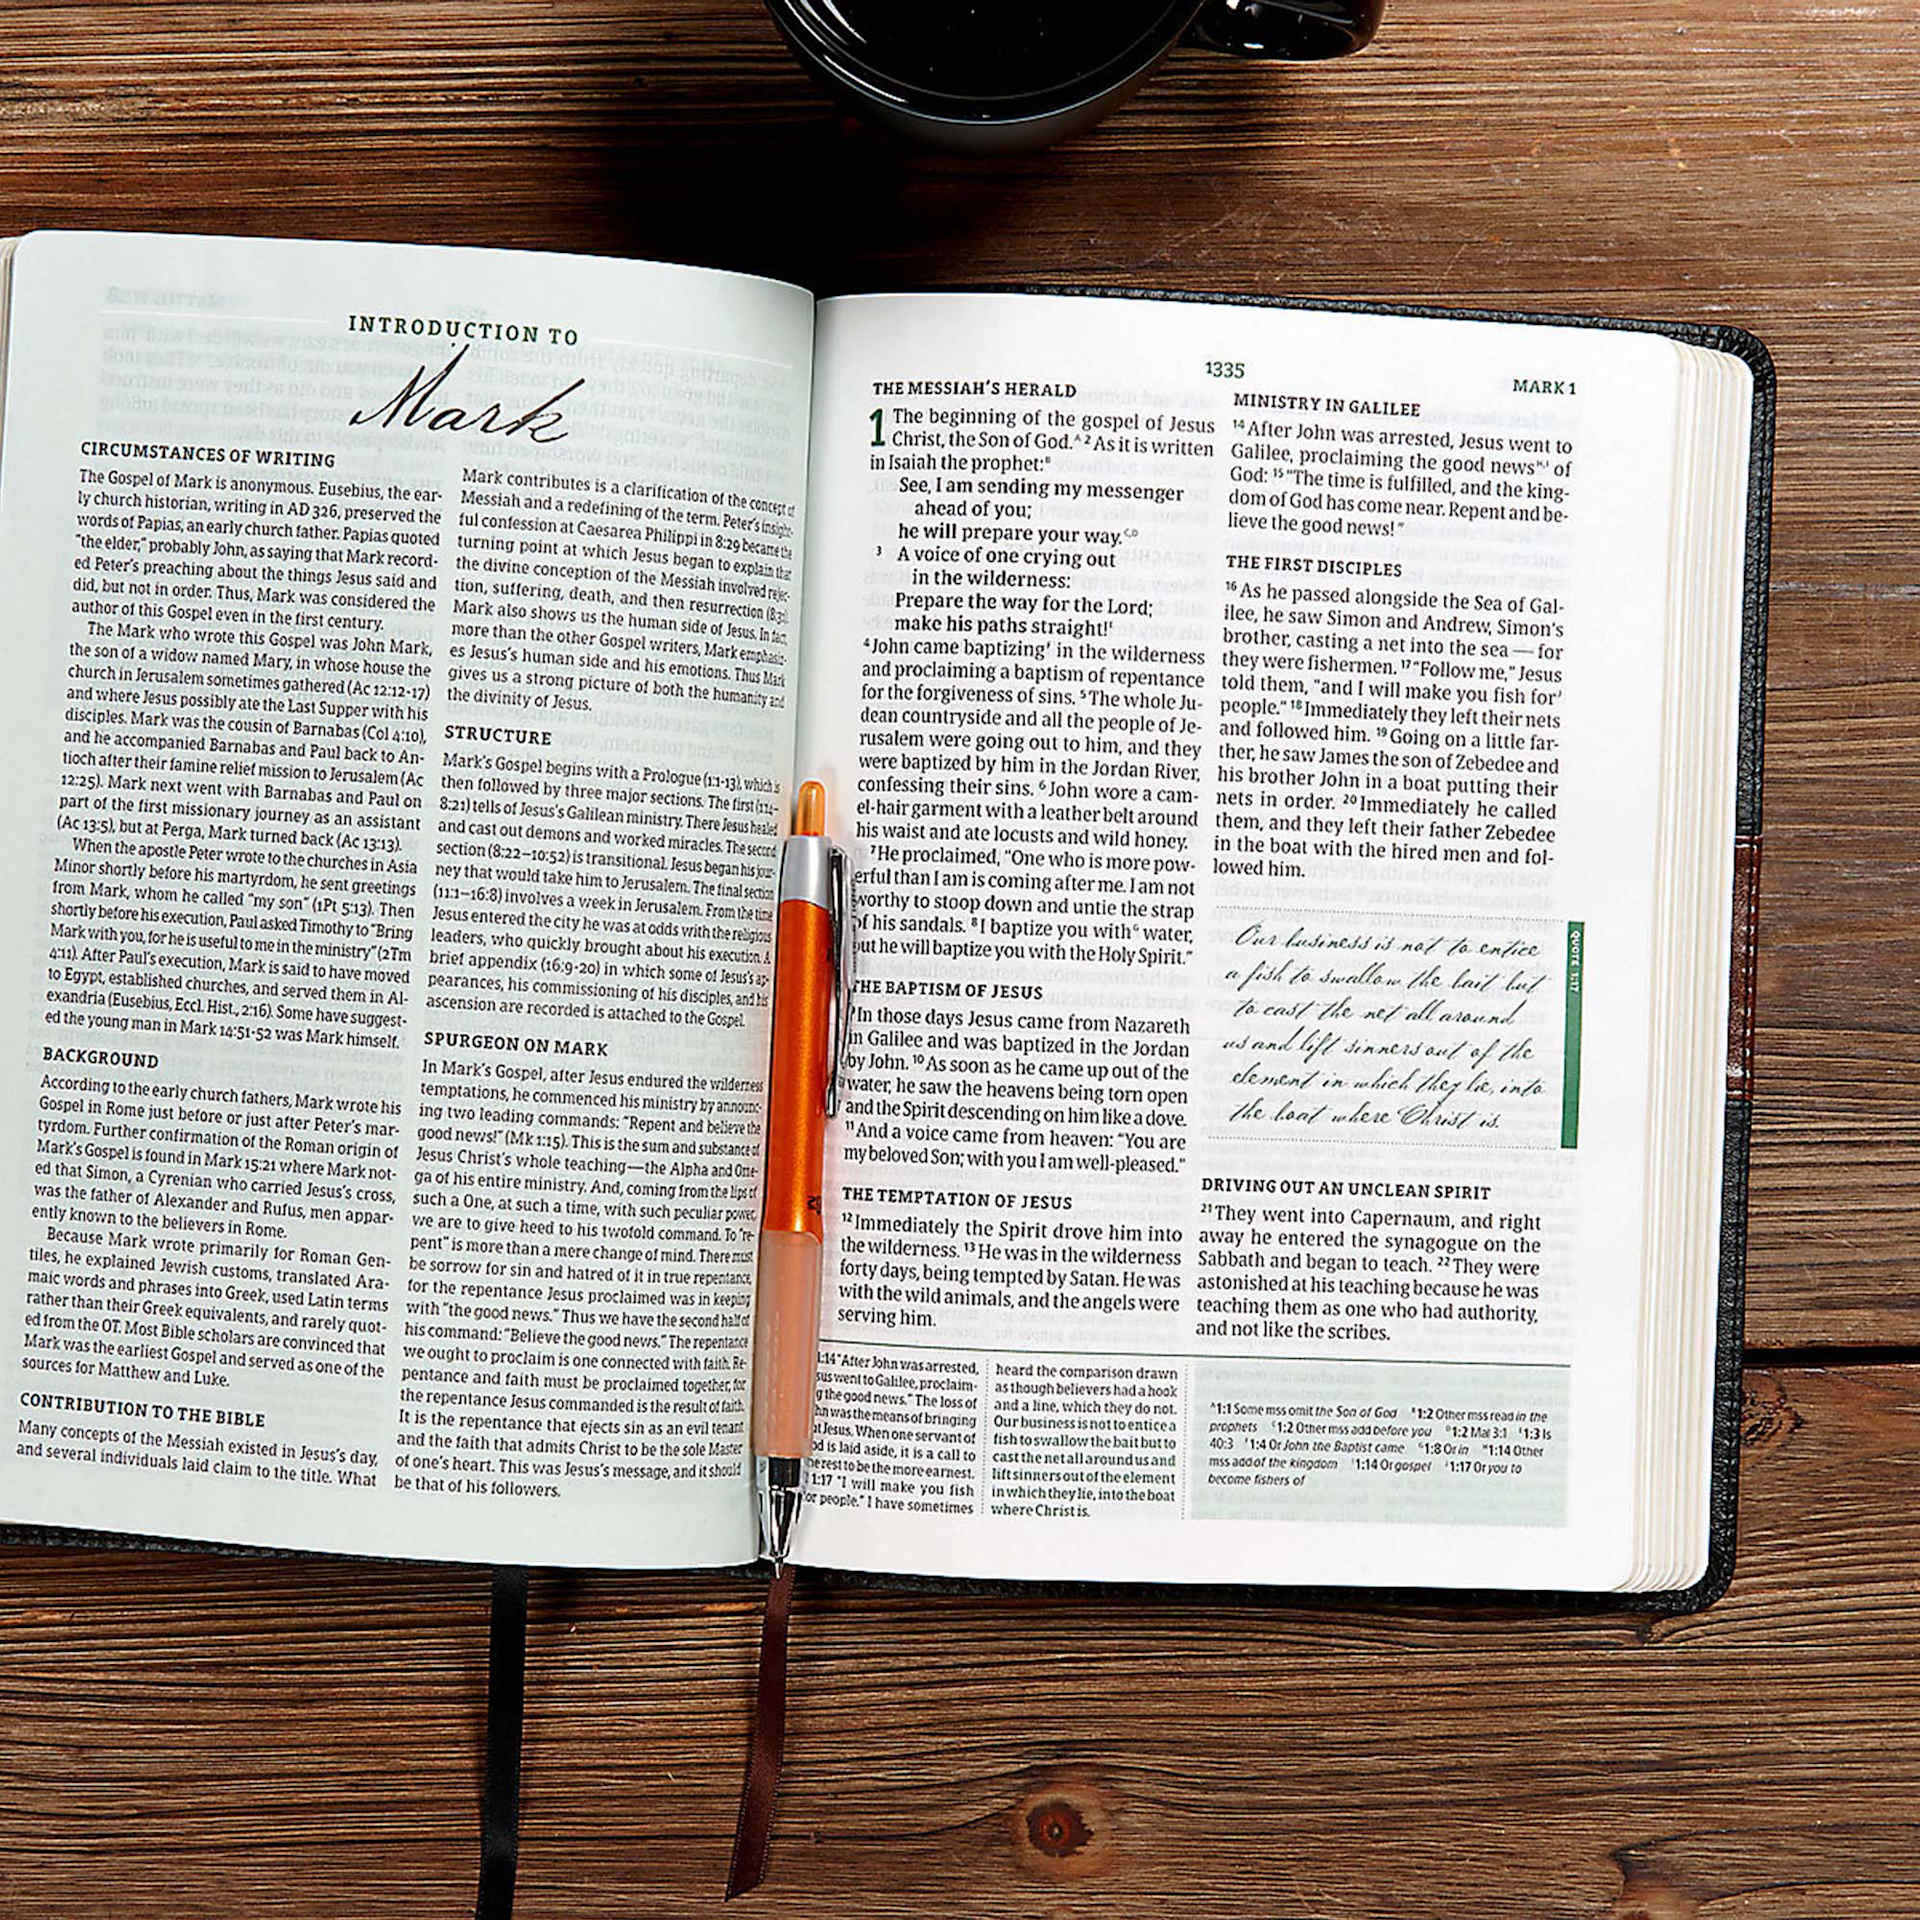 INTRODUCTION TO
Mark
CIRCUMSTANCES OF WRITING
The Gospel of Mark is anonymous. Eusebius, the ear-
ly church historian, writing in AD 326, preserved the
words of Papias, an early church father. Papias quoted
"the elder," probably John, as saying that Mark record-
ed Peter's preaching about the things Jesus said and
did, but not in order. Thus, Mark was considered the
author of this Gospel even in the first century.
The Mark who wrote this Gospel was John Mark,
the son of a widow named Mary, in whose house the
church in Jerusalem sometimes gathered (Ac 12:12-17)
and where Jesus possibly ate the Last Supper with his
disciples. Mark was the cousin of Barnabas (Col 4:10),
and he accompanied Barnabas and Paul back to An-
tioch after their famine relief mission to Jerusalem (Ac
12:25). Mark next went with Barnabas and Paul on
part of the first missionary journey as an assistant
(Ac 13:5), but at Perga, Mark turned back (Ac 13:13).
When the apostle Peter wrote to the churches in Asia
Minor shortly before his martyrdom, he sent greetings
from Mark, whom he called "my son" (1Pt 5:13). Then
shortly before his execution, Paul asked Timothy to "Bring
Mark with you, for he is useful to me in the ministry" (2Tm
4:11). After Paul's execution, Mark is said to have moved
to Egypt, established churches, and served them in Al-
exandria (Eusebius, Eccl. Hist., 2:16). Some have suggest-
ed the young man in Mark 14:51-52 was Mark himself.
BACKGROUND
According to the early church fathers, Mark wrote his
Gospel in Rome just before or just after Peter's mar-
tyrdom. Further confirmation of the Roman origin of
Mark's Gospel is found in Mark 15:21 where Mark not-
ed that Simon, a Cyrenian who carried Jesus's cross,
was the father of Alexander and Rufus, men appar-
ently known to the believers in Rome.
Because Mark wrote primarily for Roman Gen-
tiles, he explained Jewish customs, translated Ara-
maic words and phrases into Greek, used Latin terms
rather than their Greek equivalents, and rarely quot-
ed from the OT. Most Bible scholars are convinced that
Mark was the earliest Gospel and served as one of the
sources for Matthew and Luke.
CONTRIBUTION TO THE BIBLE
Many concepts of the Messiah existed in Jesus's day,
and several individuals laid claim to the title. What
Mark contributes is a clarification of the concept of
Messiah and a redefining of the term. Peter's insight-
ful confession at Caesarea Philippi in 8:29 became the
turning point at which Jesus began to explain that
the divine conception of the Messiah involved rejec-
tion, suffering, death, and then resurrection (8:31).
Mark also shows us the human side of Jesus. In fact,
more than the other Gospel writers, Mark emphasiz-
es Jesus's human side and his emotions. Thus Mark
gives us a strong picture of both the humanity and
the divinity of Jesus.
STRUCTURE
Mark's Gospel begins with a Prologue (1:1-13), which is
then followed by three major sections. The first (1:14–
8:21) tells of Jesus's Galilean ministry. There Jesus healed
and cast out demons and worked miracles. The second
section (8:22–10:52) is transitional. Jesus began his jour-
ney that would take him to Jerusalem. The final section
(11:1–16:8) involves a week in Jerusalem. From the time
Jesus entered the city he was at odds with the religious
leaders, who quickly brought about his execution. A
brief appendix (16:9-20) in which some of Jesus's ap-
pearances, his commissioning of his disciples, and his
ascension are recorded is attached to the Gospel.
SPURGEON ON MARK
In Mark's Gospel, after Jesus endured the wilderness
temptations, he commenced his ministry by announc-
ing two leading commands: "Repent and believe the
good news!" (Mk 1:15). This is the sum and substance of
Jesus Christ's whole teaching—the Alpha and Ome-
ga of his entire ministry. And, coming from the lips of
such a One, at such a time, with such peculiar power,
we are to give heed to his twofold command. To "re-
pent" is more than a mere change of mind. There must
be sorrow for sin and hatred of it in true repentance,
for the repentance Jesus proclaimed was in keeping
with "the good news." Thus we have the second half of
his command: "Believe the good news." The repentance
we ought to proclaim is one connected with faith. Re-
pentance and faith must be proclaimed together, for
the repentance Jesus commanded is the result of faith.
It is the repentance that ejects sin as an evil tenant
and the faith that admits Christ to be the sole Master
of one's heart. This was Jesus's message, and it should
be that of his followers.
1335
MARK 1
THE MESSIAH'S HERALD
1 The beginning of the gospel of Jesus
Christ, the Son of God.ᴬ ² As it is written
in Isaiah the prophet:ᴮ
See, I am sending my messenger
ahead of you;
he will prepare your way.ᶜ,ᴰ
³ A voice of one crying out
in the wilderness:
Prepare the way for the Lord;
make his paths straight!ᴱ
⁴ John came baptizingᶠ in the wilderness
and proclaiming a baptism of repentance
for the forgiveness of sins. ⁵ The whole Ju-
dean countryside and all the people of Je-
rusalem were going out to him, and they
were baptized by him in the Jordan River,
confessing their sins. ⁶ John wore a cam-
el-hair garment with a leather belt around
his waist and ate locusts and wild honey.
⁷ He proclaimed, "One who is more pow-
erful than I am is coming after me. I am not
worthy to stoop down and untie the strap
of his sandals. ⁸ I baptize you withᴳ water,
but he will baptize you with the Holy Spirit."
THE BAPTISM OF JESUS
In those days Jesus came from Nazareth
in Galilee and was baptized in the Jordan
by John. ¹⁰ As soon as he came up out of the
water, he saw the heavens being torn open
and the Spirit descending on him like a dove.
¹¹ And a voice came from heaven: "You are
my beloved Son; with you I am well-pleased."
THE TEMPTATION OF JESUS
¹² Immediately the Spirit drove him into
the wilderness. ¹³ He was in the wilderness
forty days, being tempted by Satan. He was
with the wild animals, and the angels were
serving him.
MINISTRY IN GALILEE
¹⁴ After John was arrested, Jesus went to
Galilee, proclaiming the good newsᴴ,ᴵ of
God: ¹⁵ "The time is fulfilled, and the king-
dom of God has come near. Repent and be-
lieve the good news!"
THE FIRST DISCIPLES
¹⁶ As he passed alongside the Sea of Gal-
ilee, he saw Simon and Andrew, Simon's
brother, casting a net into the sea — for
they were fishermen. ¹⁷ "Follow me," Jesus
told them, "and I will make you fish forᴶ
people." ¹⁸ Immediately they left their nets
and followed him. ¹⁹ Going on a little far-
ther, he saw James the son of Zebedee and
his brother John in a boat putting their
nets in order. ²⁰ Immediately he called
them, and they left their father Zebedee
in the boat with the hired men and fol-
lowed him.
Our business is not to entice
a fish to swallow the bait but
to cast the net all around
us and lift sinners out of the
element in which they lie, into
the boat where Christ is.
QUOTE 1:17
DRIVING OUT AN UNCLEAN SPIRIT
²¹ They went into Capernaum, and right
away he entered the synagogue on the
Sabbath and began to teach. ²² They were
astonished at his teaching because he was
teaching them as one who had authority,
and not like the scribes.
1:14 "After John was arrested,
sus went to Galilee, proclaim-
g the good news." The loss of
hn was the means of bringing
ut Jesus. When one servant of
od is laid aside, it is a call to
he rest to be the more earnest.
1:17 "I will make you fish
or people." I have sometimes
heard the comparison drawn
as though believers had a hook
and a line, which they do not.
Our business is not to entice a
fish to swallow the bait but to
cast the net all around us and
lift sinners out of the element
in which they lie, into the boat
where Christ is.
ᴬ1:1 Some mss omit the Son of God ᴮ1:2 Other mss read in the
prophets ᶜ1:2 Other mss add before you ᴰ1:2 Mal 3:1 ᴱ1:3 Is
40:3 ᶠ1:4 Or John the Baptist came ᴳ1:8 Or in ᴴ1:14 Other
mss add of the kingdom ᴵ1:14 Or gospel ᴶ1:17 Or you to
become fishers of